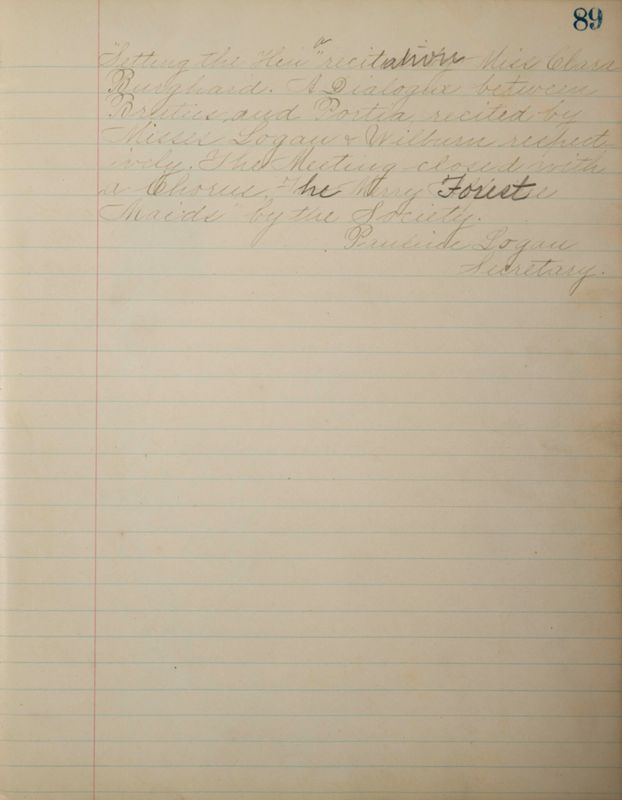 89
"Setting the Hen" a recitation Miss Clara
Burghard. A Dialogue between
Brutus and Portia, recited by
Misses Logan & Wilburn respect
ively. The Meeting closed with
a Chorus, "The Merry Foreste
Maids" by the Society.
Logan
Secretary.